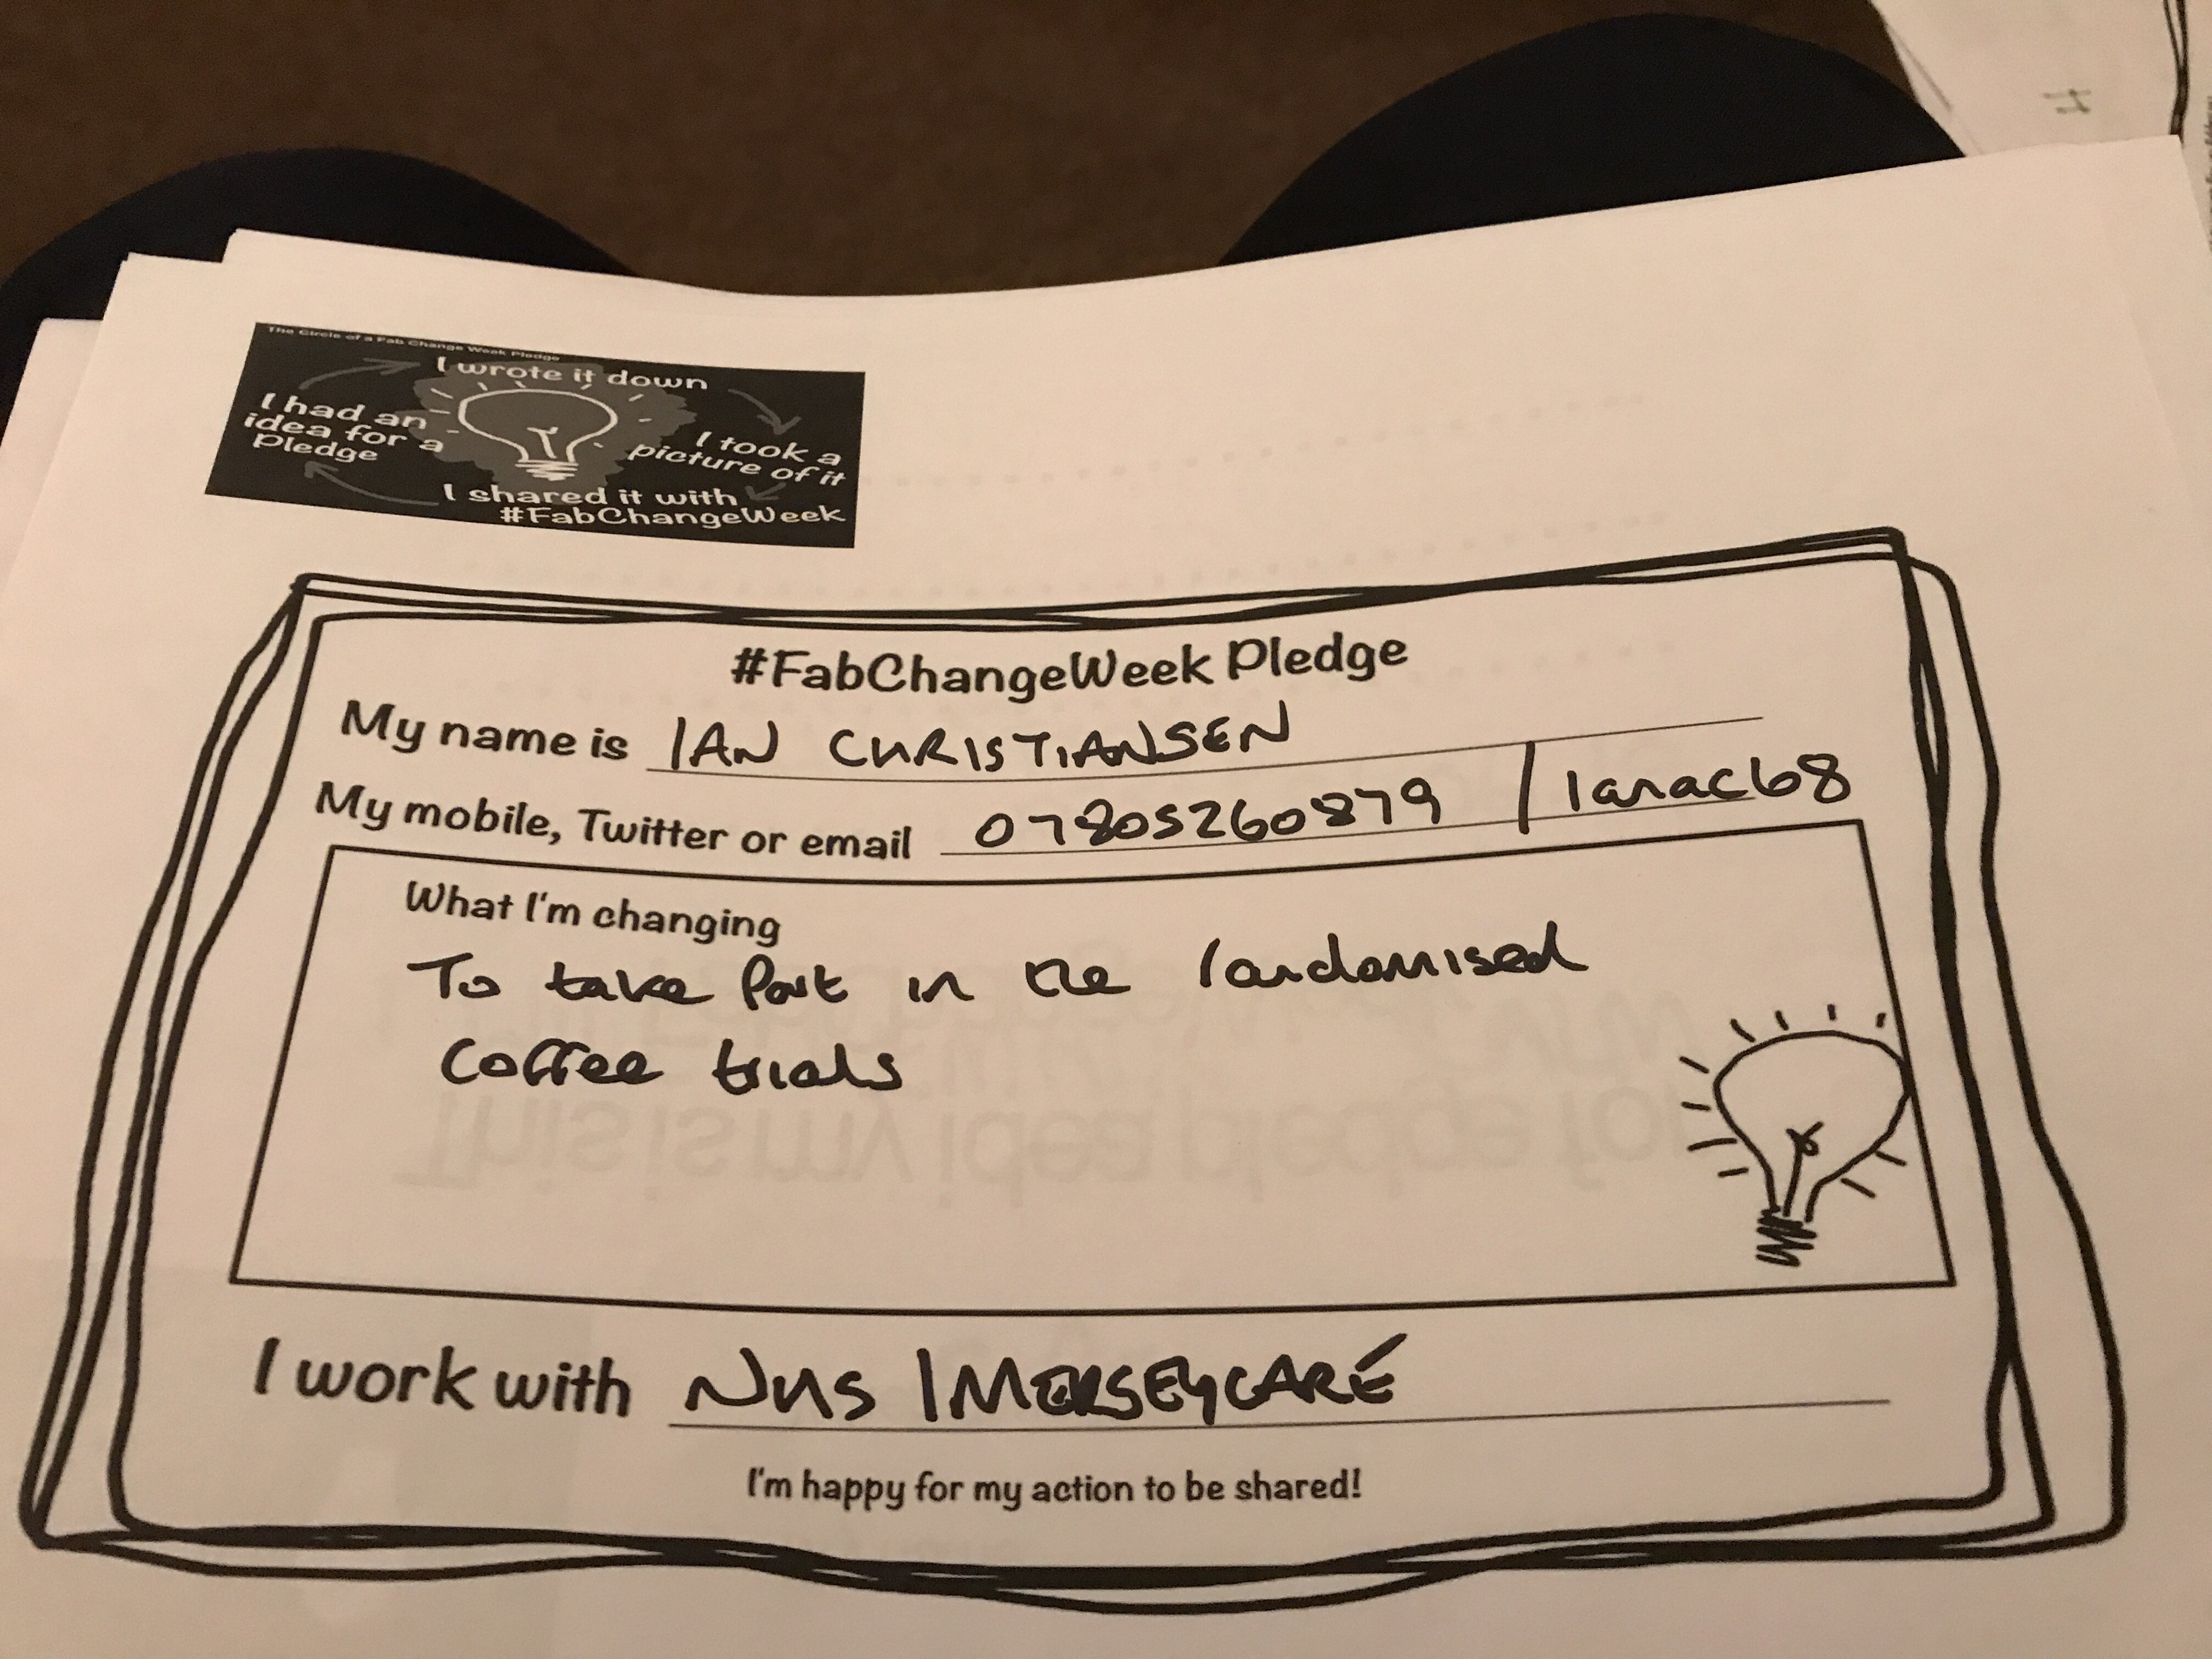 The Circle of a Fab Change Week Pledge
I wrote it down
I had an
idea for a
Pledge
I took a
picture of it
I shared it with
#FabChangeWeek
#FabChangeWeek Pledge
My name is IAN CHRISTIANSEN
My mobile, Twitter or email 07805260879 / Ianac68
What I'm changing
To take Part in the randomised
Coffee trials
I work with NHS / MERSEYCARE
I'm happy for my action to be shared!
This is my idea pledge for